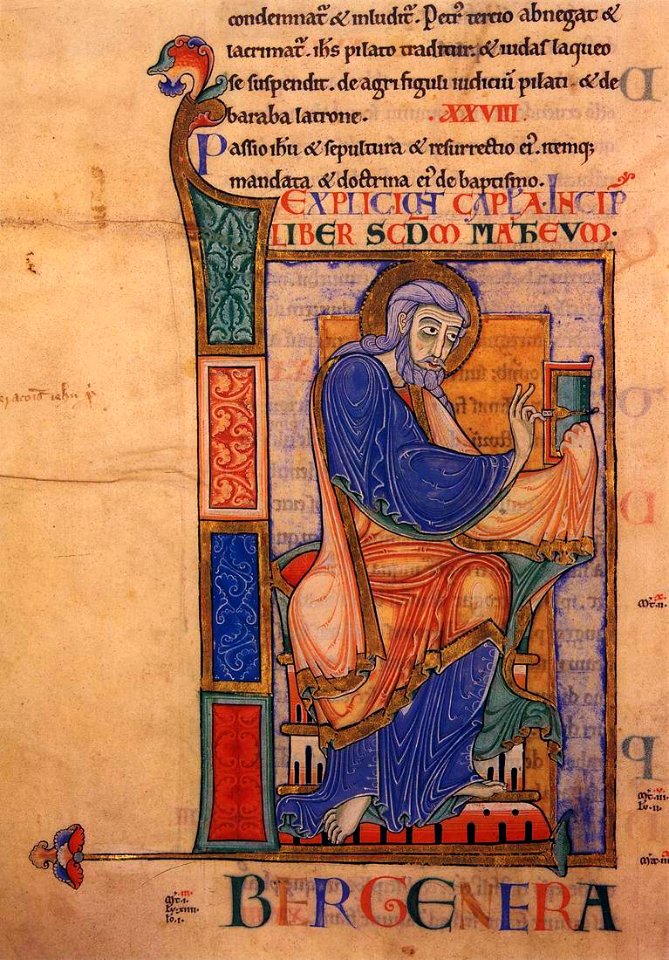 condemnat᷑ & inludit᷑. Petr᷒ tercio abnegat &
lacrimat᷑. ihs pilato traditur. & iudas laqueo
se suspendit. de agri figuli iudiciū pilati. & de
baraba latrone. .XXVIII.
Passio ihu & sepultura & resurrectio ei᷒. itemq;
mandata & doctrina ei᷒ de baptismo.
EXPLICIUNT CAPLA. INCIP
LIBER SCDM MATHEVM.
BER GENERA